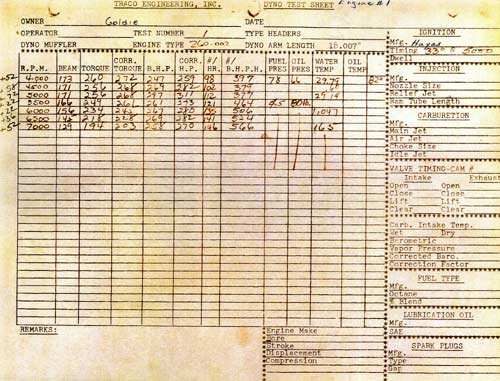 TRACO ENGINEERING, INC. DYNO TEST SHEET Engine #1
OWNER Goldie DATE
OPERATOR TEST NUMBER 1 TYPE HEADERS
DYNO MUFFLER ENGINE TYPE DYNO ARM LENGTH 18.007"
R.P.M. BEAM TORQUE CORR. TORQUE B.H.P. CORR. H.P. #/ HR. #/ B.H.P.H. FUEL PRES OIL PRES WATER TEMP OIL TEMP
+52 4000 173 260 272 247 259 98 397 78 66
4500 171 256 268 269 282 102 379
5000 171 256 268
5500 166 249 261 261 273 121 464
6000 156 234 506
6500 218 228 269 282 141 524
+52 7000 129 194 203 258 270 146 566 165
REMARKS:
Engine Make
Bore
Stroke
Displacement
Compression
IGNITION
Mfg. Hays
Timing 33° @ 5000
Dwell
INJECTION
Mfg.
Nozzle Size
Relief Jet
Ram Tube Length
CARBURETION
Mfg.
Main Jet
Air Jet
Choke Size
Idle Jet
VALVE TIMING-CAM #
Intake Exhaust
Open Open
Close Close
Lift Lift
Clear Clear
Carb. Intake Temp.
Wet Dry
Barometric
Vapor Pressure
Corrected Baro.
Correction Factor
FUEL TYPE
Mfg.
Octane
% Blend
LUBRICATION OIL
Mfg.
SAE
SPARK PLUGS
Mfg.
Type
Gap